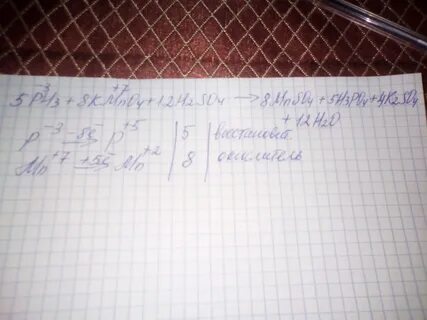 -3 +7
5PH3 + 8KMnO4 + 12H2SO4 → 8MnSO4 + 5H3PO4 + 4K2SO4
+ 12H2O
P⁻³ -8e→ P⁺⁵ | 5 | восстановит.
Mn⁺⁷ +5e→ Mn⁺² | 8 | окислитель